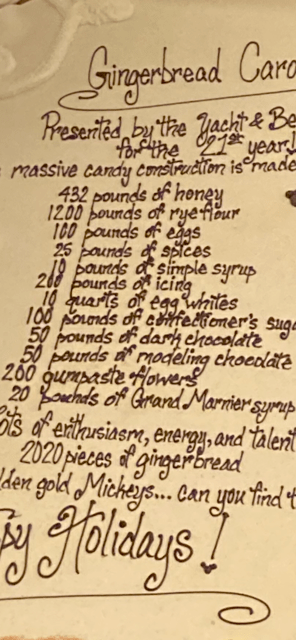 Gingerbread Caro
Presented by the Yacht & Be
for the 21st year!
massive candy construction is made
432 pounds of honey
1200 pounds of rye flour
100 pounds of eggs
25 pounds of spices
10 pounds of simple syrup
200 pounds of icing
10 quarts of egg whites
100 pounds of confectioner's suga
50 pounds of dark chocolate
50 pounds of modeling chocolate
200 gumpaste flowers
20 pounds of Grand Marnier syrup
ots of enthusiasm, energy, and talent
2020 pieces of gingerbread
dden gold Mickeys... can you find t
py Holidays!